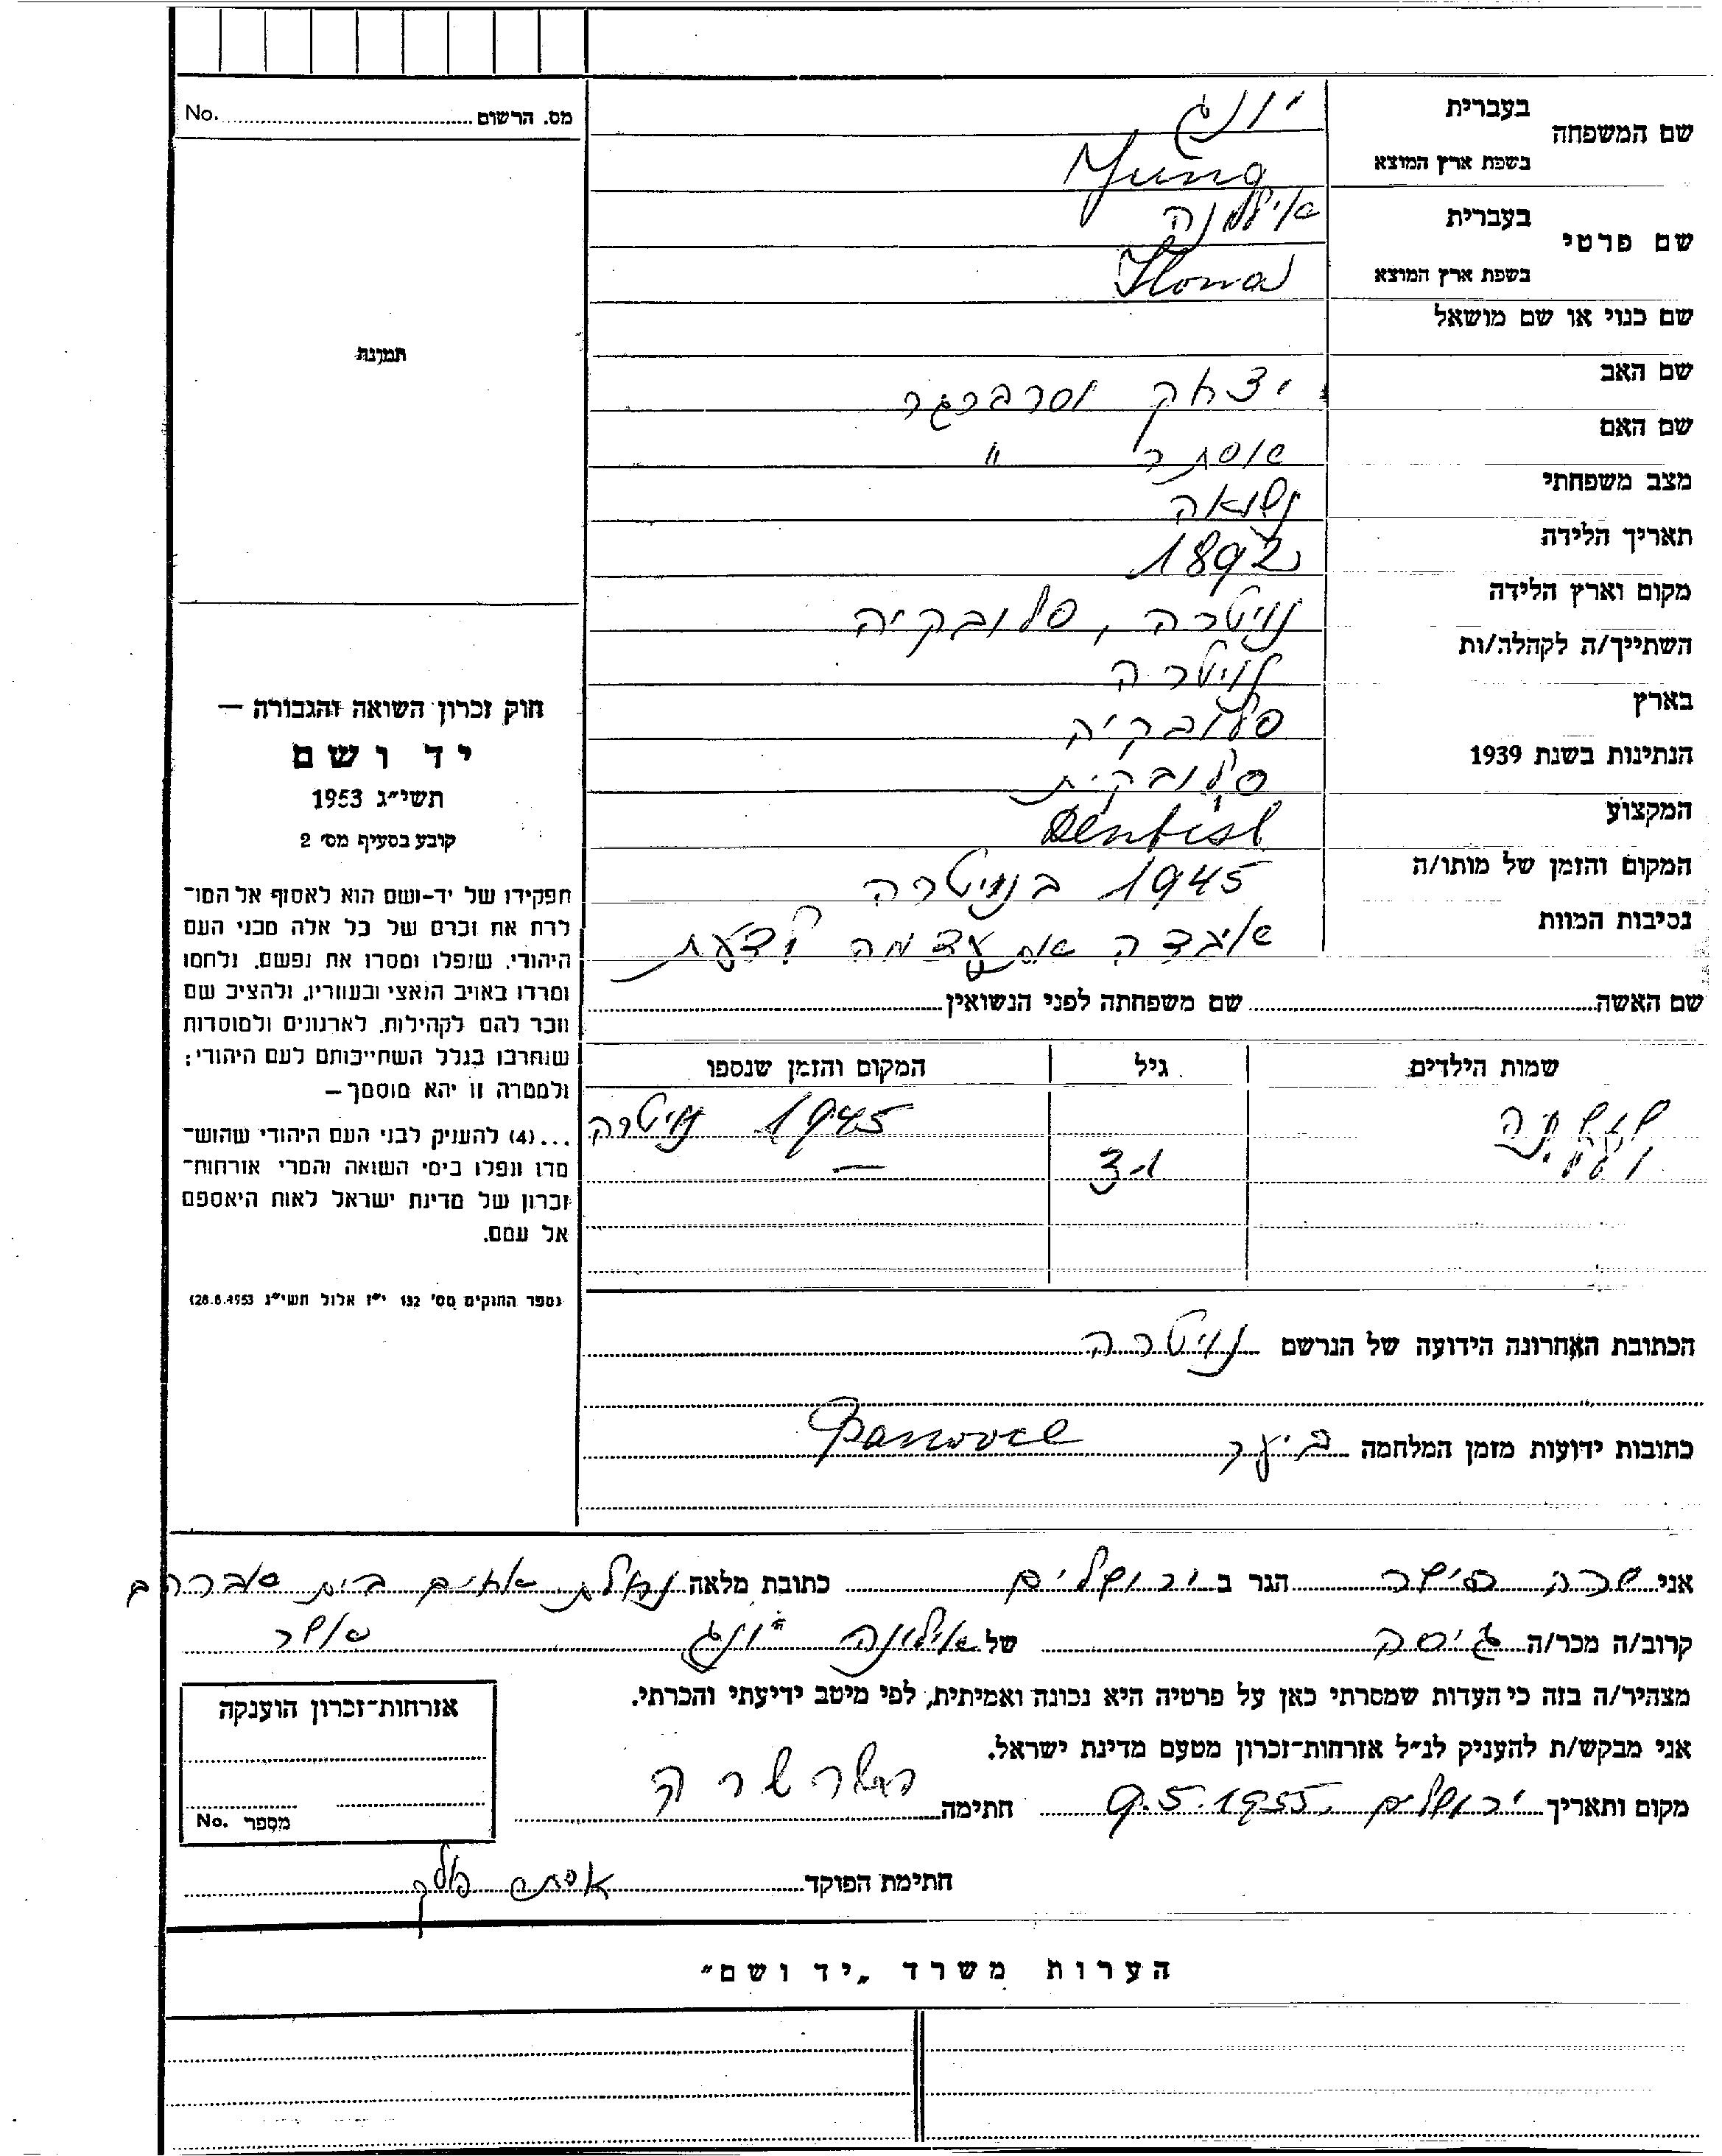 מס. הרשום No.
שם המשפחה
בעברית יונג
בשפת ארץ המוצא Jung
שם פרטי
בעברית אילונה
בשפת ארץ המוצא Ilona
שם כנוי או שם מושאל
שם האב יצחק וסרברגר
שם האם אסתר "
מצב משפחתי נשואה
תאריך הלידה 1892
מקום וארץ הלידה נויטרה, סלובקיה
השתייך/ה לקהלה/ות נויטרה
בארץ סלובקיה
הנתינות בשנת 1939 סלובקית
המקצוע Dentist
המקום והזמן של מותו/ה 1945 בנויטרה
נסיבות המוות איבדה את עצמה לדעת
שם האשה שם משפחתה לפני הנשואין
שמות הילדים גיל המקום והזמן שנספו
שושנה 1945 נויטרה
הכתובת האחרונה הידועה של הנרשם נויטרה
כתובות ידועות מזמן המלחמה ביער
אני שרה הגר ב ירושלים כתובת מלאה נחלת אחים בית אברהם
קרוב/ה מכר/ה גיסה של אילונה יונג אושר
מצהיר/ה בזה כי העדות שמסרתי כאן על פרטיה היא נכונה ואמיתית, לפי מיטב ידיעתי והכרתי.
אני מבקש/ת להעניק לנ״ל אזרחות־זכרון מטעם מדינת ישראל.
מקום ותאריך ירושלים 9.5.1955 חתימה שרה
חתימת הפוקד אסתר
תמונה
חוק זכרון השואה והגבורה —
יד ושם
תשי״ג 1953
קובע בסעיף מס׳ 2
תפקידו של יד-ושם הוא לאסוף אל המו־
לדת את זכרם של כל אלה מבני העם
היהודי, שנפלו ומסרו את נפשם, נלחמו
ומרדו באויב הנאצי ובעוזריו, ולהציב שם
וזכר להם לקהילות, לארגונים ולמוסדות
שנחרבו בגלל השתייכותם לעם היהודי;
ולמטרה זו יהא מוסמך —
...(4) להעניק לבני העם היהודי שהוש־
מדו ונפלו בימי השואה והמרי אזרחות־
זכרון של מדינת ישראל לאות היאספם
אל עמם.
(ספר החוקים מס׳ 132 י״ז אלול תשי״ג 28.8.1953)
אזרחות־זכרון הוענקה
מספר No.
הערות משרד „יד ושם״